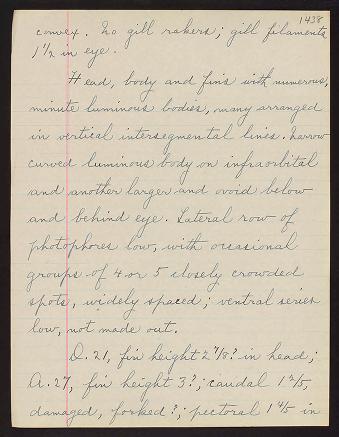 1438
convex. No gill rakers; gill filaments
1 1/2 in eye.
Head, body and fins with numerous,
minute luminous bodies, many arranged
in vertical intersegmental lines. Narrow
curved luminous body on infraorbital
and another larger and ovoid below
and behind eye. Lateral row of
photophores low, with occasional
groups of 4 or 5 closely crowded
spots, widely spaced; ventral series
low, not made out.
D. 21, fin height 2 7/8? in head;
A. 27, fin height 3?; caudal 1 2/5,
damaged, forked?; pectoral 1 4/5 in